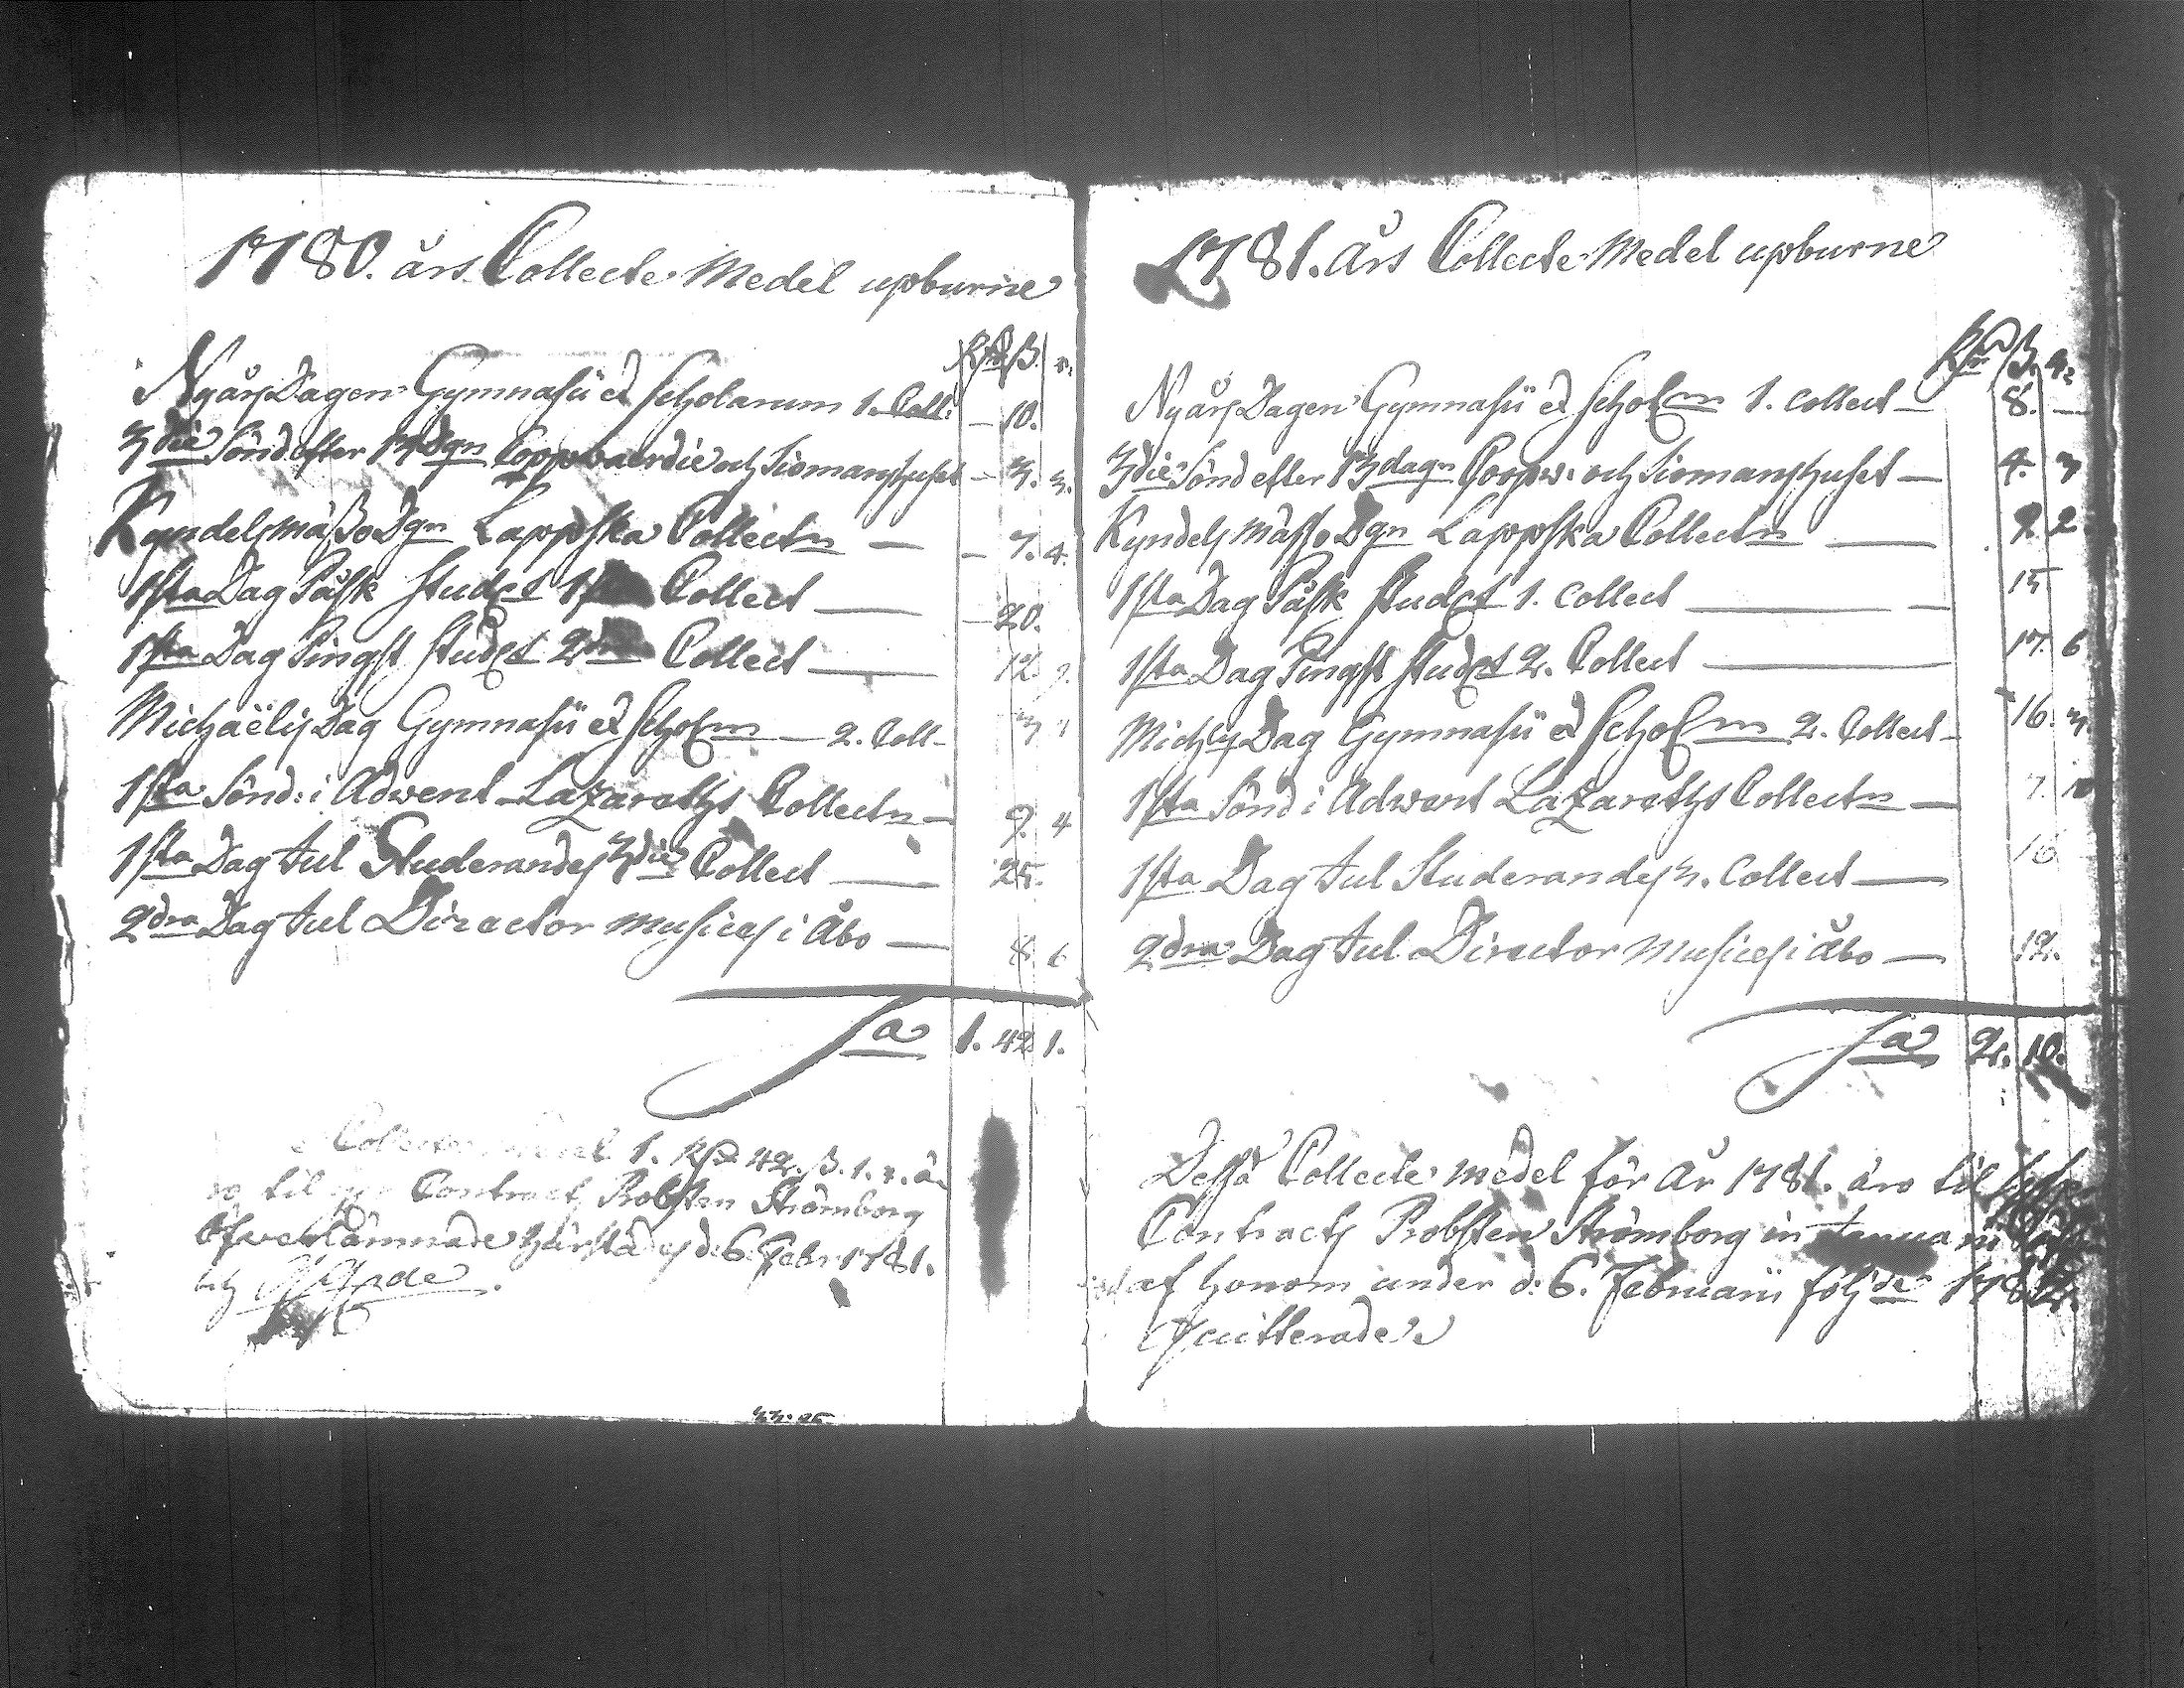 1780. års Collecte Medel upburne
Rd ß. r.
Nyårs Dagen Gymnasii et Scholarum 1. Coll: — 10.
3die Sönd efter 13 Dgn Coopvaerdie och Siömans huset — 3. 3.
Kyndelsmässo Dgn Lappska Collectn — — 7. 4.
1sta Dag Påsk Studes 1sta Collect — — 20.
1sta Dag Pingst Studes 2dra Collect — 12.
Michaëlis Dag Gymnasii et Scholm — 2. Coll-
1sta Sönd: i Advent Lazareths Collectn — 9. 4
1sta Dag Jul Studerandes 3die Collect — 25.
2dra Dag Jul Director Musices i Åbo — 8 6
Sa 1. 42 1.
Collecte Medel 1. Rd 42. ß. 1. r. ä
ro til Contracts Probsten Strömborg
öfverlämnade härstädes d: 6. Febr 1781.
33. 25
1781. Års Collecte Medel upburne
Rd ß. r.
Nyårs Dagen Gymnasii et Scholm 1. Collect — 8. —
3die Sönd efter 13 dagn Coopv. och Siömans huset — 4. 3
Kyndels mässo Dgn Lappska Collectn — 9. 2
1sta Dag Påsk Studes 1. Collect — — 15
1sta Dag Pingst Studes 2. Collect — 17. 6
Michls Dag Gymnasii et Scholm 2. Collect — 16. 3.
1sta Sönd i Advent Lazareths Collectn — 7. 10
1sta Dag Jul Studerandes 3. Collect — 16
2dra Dag Jul Director Musices i Åbo — 12.
Sa 2. 10.
Dessa Collecte medel för År 1781. äro til
Contracts Probsten Strömborg in Januarii
af honom under d: 6. Februarii följde 1782.
quitterade